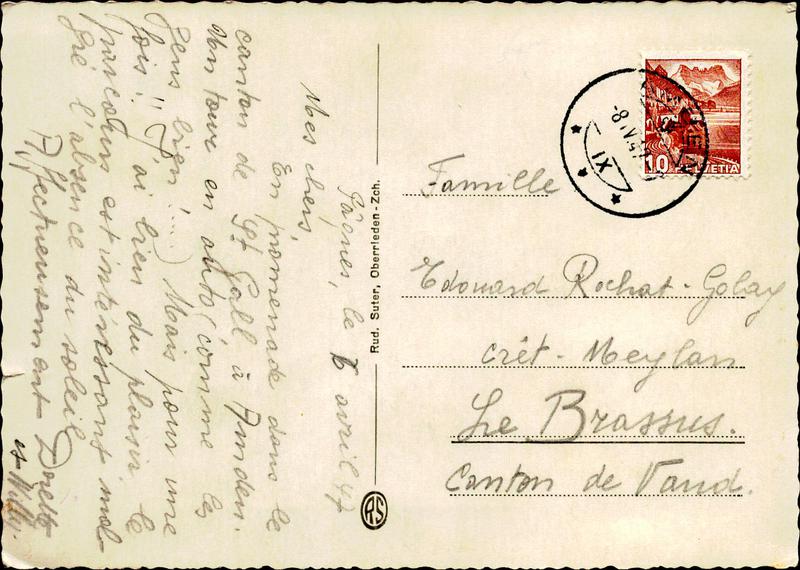 Pâques, le 6 avril 47
Mes chers,
En promenade dans le
canton de St Gall, à Amden.
Un tour en auto (comme les
gens bien!....) Mais pour une
fois!! J'ai bien du plaisir le
parcours est intéressant mal-
gré l'absence du soleil
Affectueusement Dorette
et Willy.
Rud. Suter, Oberrieden - Zch.
RS
XI
-8. IV. 47
10 HELVETIA
Famille
Edouard Rochat-Golay
Crêt-Meylan
Le Brassus.
Canton de Vaud.